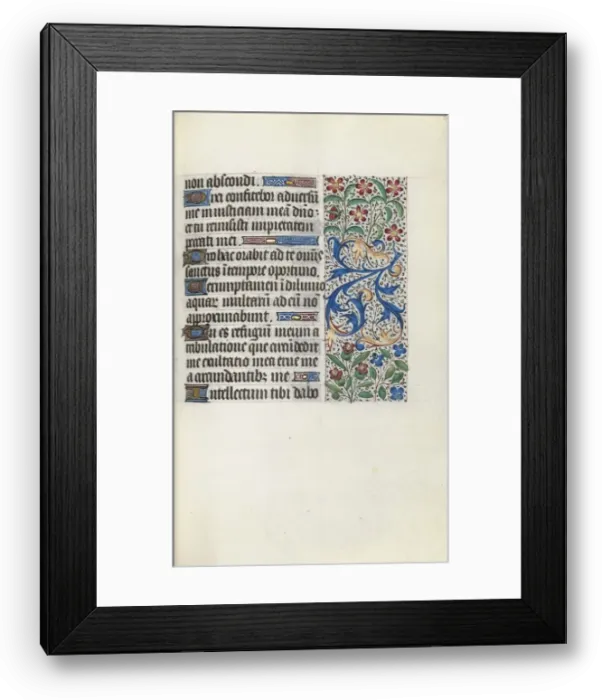 non abscondi.
Dixi confitebor adversū
me in iusticiam meā dño:
et tu remisisti impietatem
peccati mei.
Pro hac orabit ad te omīs
sanctus ī tempore oportuno.
Verumptamen ī diluvio
aquar multarū ad eū nō
approximabunt.
Tu es refugiū meum a
tribulatione que circūdedit
me exultacio mea erue me
a circundantibz me
Intellectum tibi dabo